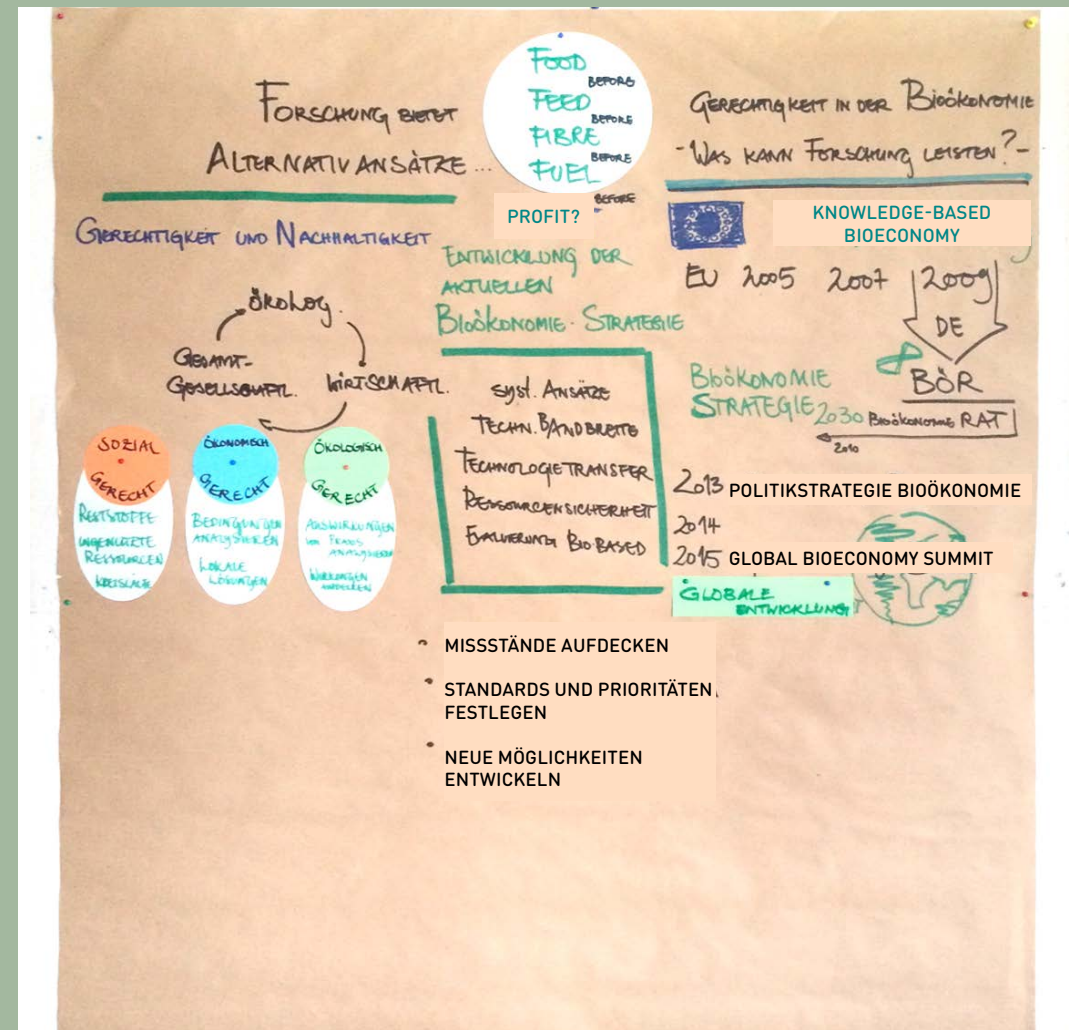 FORSCHUNG BIETET
ALTERNATIVANSÄTZE ...
FOOD
BEFORE
FEED
BEFORE
FIBRE
BEFORE
FUEL
BEFORE
PROFIT?
GERECHTIGKEIT IN DER BIOÖKONOMIE
- WAS KANN FORSCHUNG LEISTEN? -
GERECHTIGKEIT UND NACHHALTIGKEIT
ÖKOLOG.
GESAMT-
GESELLSCHAFTL.
WIRTSCHAFTL.
SOZIAL
GERECHT
RESTSTOFFE
UNGENUTZTE
RESSOURCEN
KREISLÄUFE
ÖKONOMISCH
GERECHT
BEDINGUNGEN
ANALYSIEREN
LOKALE
LÖSUNGEN
ÖKOLOGISCH
GERECHT
AUSWIRKUNGEN
VON PRAXIS
ANALYSIEREN
WIRKUNGEN
ENTWICKLUNG DER
AKTUELLEN
BIOÖKONOMIE-STRATEGIE
SYST. ANSÄTZE
TECHN. BANDBREITE
TECHNOLOGIETRANSFER
RESSOURCENSICHERHEIT
EVALUIERUNG BIO-BASED
KNOWLEDGE-BASED
BIOECONOMY
EU 2005 2007 2009
DE
BÖR
BIOÖKONOMIE
STRATEGIE 2030 BIOÖKONOMIE RAT
2010
2013 POLITIKSTRATEGIE BIOÖKONOMIE
2014
2015 GLOBAL BIOECONOMY SUMMIT
GLOBALE
ENTWICKLUNG
• MISSSTÄNDE AUFDECKEN
• STANDARDS UND PRIORITÄTEN
FESTLEGEN
• NEUE MÖGLICHKEITEN
ENTWICKELN